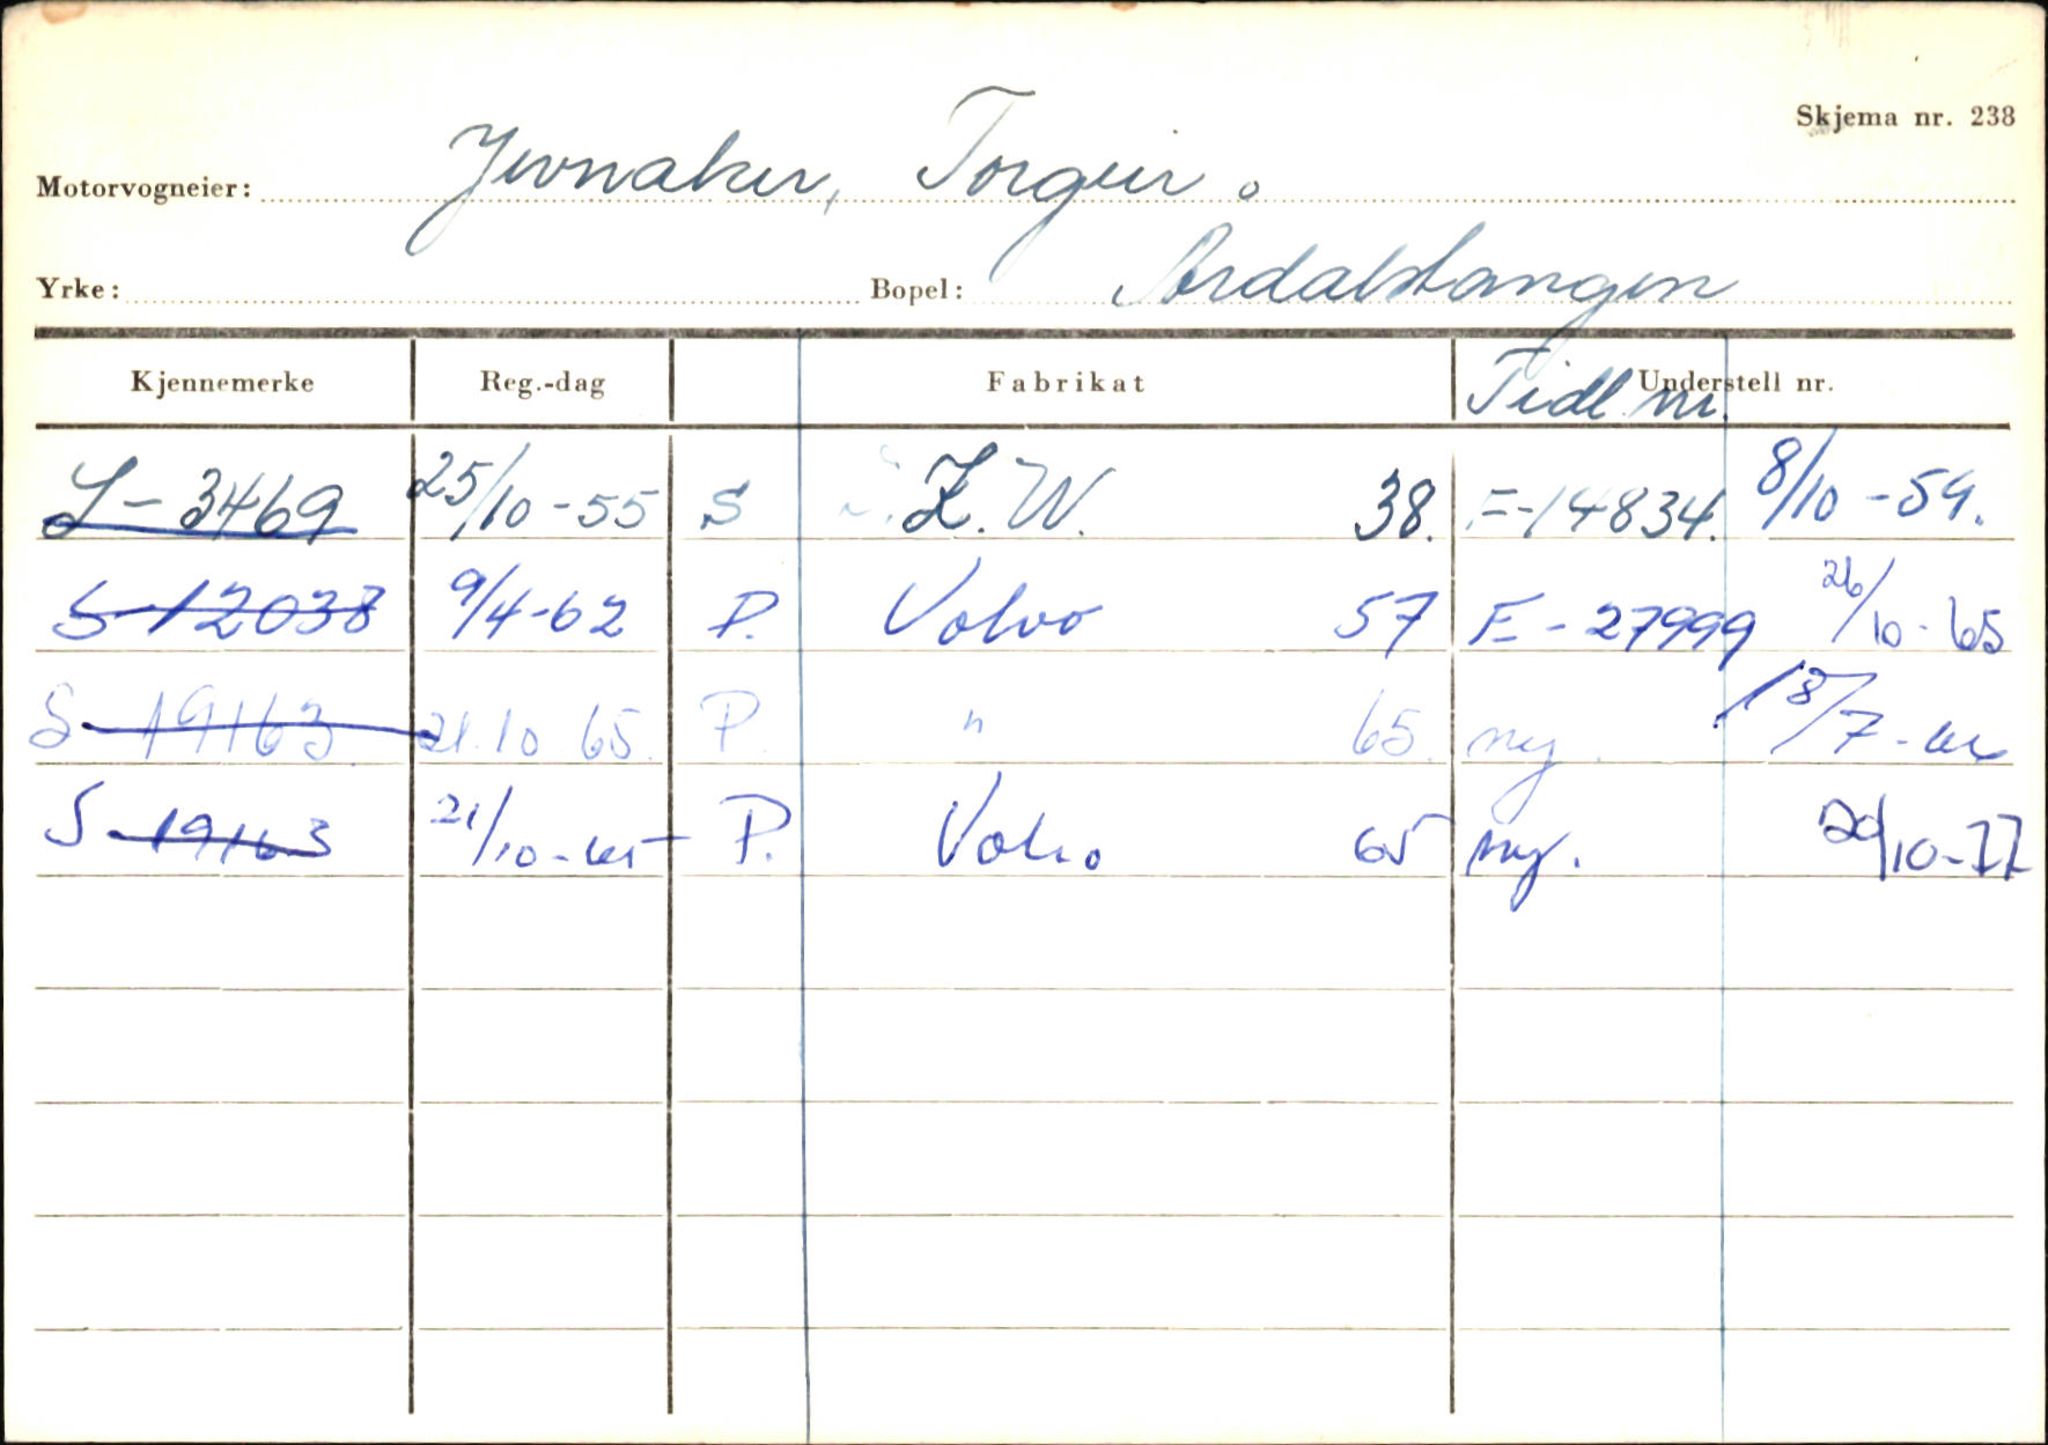 Skjema nr. 238
Motorvogneier: Jevnaker, Torgeir.
Yrke: Bopel: Årdalstangen
Kjennemerke Reg.-dag Fabrikat Tidl. nr. Understell nr.
S-3469 25/10-55 S Z.W. 38. F-14834. 8/10-59.
S-12038 9/4-62 P. Volvo 57 F-27999 26/10-65
S-19163. 21.10.65. P. " 65. ny. 18/7-66
S-19163 21/10-65 P. Volvo 65 ny. 20/10-77